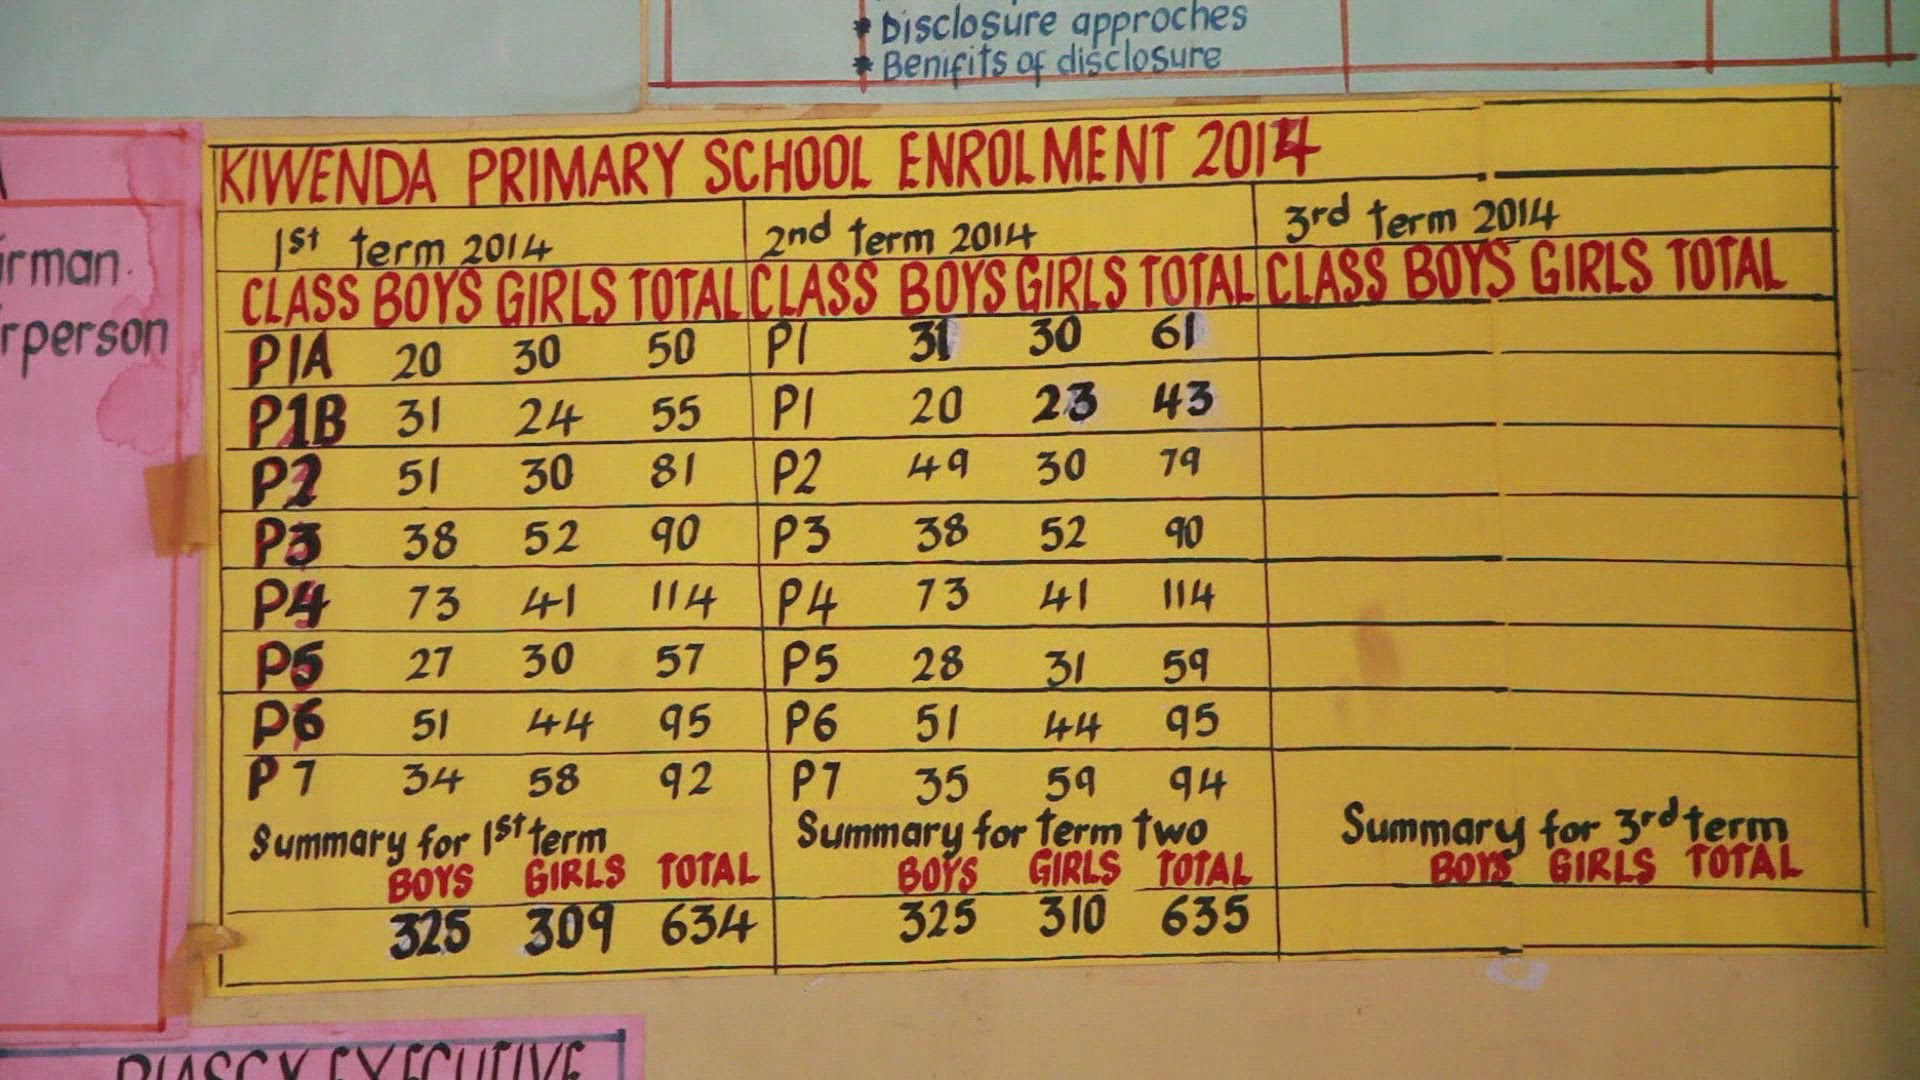 * Disclosure approches
* Benifits of disclosure
irman.
rperson
KIWENDA PRIMARY SCHOOL ENROLMENT 2014
1st term 2014 2nd term 2014 3rd term 2014
CLASS BOYS GIRLS TOTAL CLASS BOYS GIRLS TOTAL CLASS BOYS GIRLS TOTAL
P1A 20 30 50 P1 31 30 61
P1B 31 24 55 P1 20 23 43
P2 51 30 81 P2 49 30 79
P3 38 52 90 P3 38 52 90
P4 73 41 114 P4 73 41 114
P5 27 30 57 P5 28 31 59
P6 51 44 95 P6 51 44 95
P7 34 58 92 P7 35 59 94
Summary for 1st term Summary for term two Summary for 3rd term
BOYS GIRLS TOTAL BOYS GIRLS TOTAL BOYS GIRLS TOTAL
325 309 634 325 310 635
EXECUTIVE